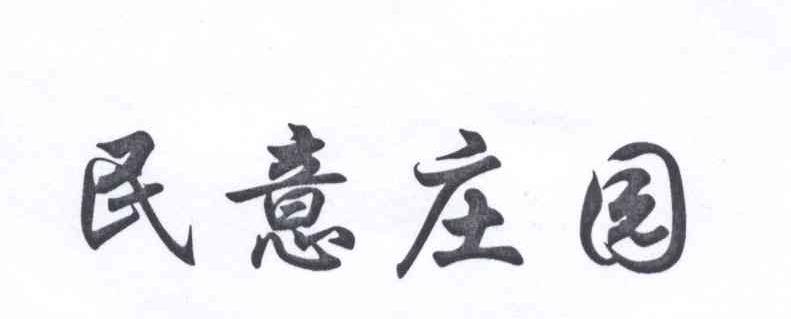 民意庄园